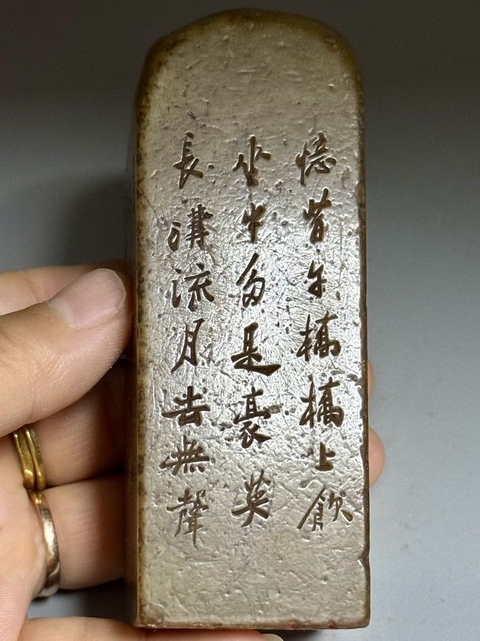 憶昔午橋橋上飲
坐中多是豪英
長溝流月去無聲